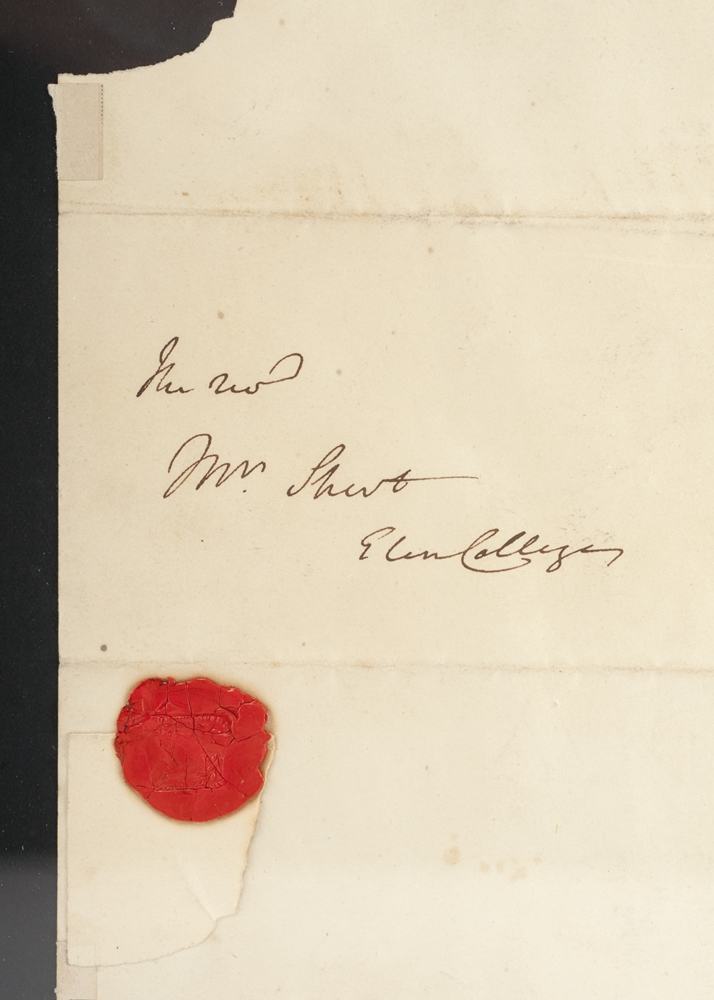 The Revd
Mr. Short
Eton College